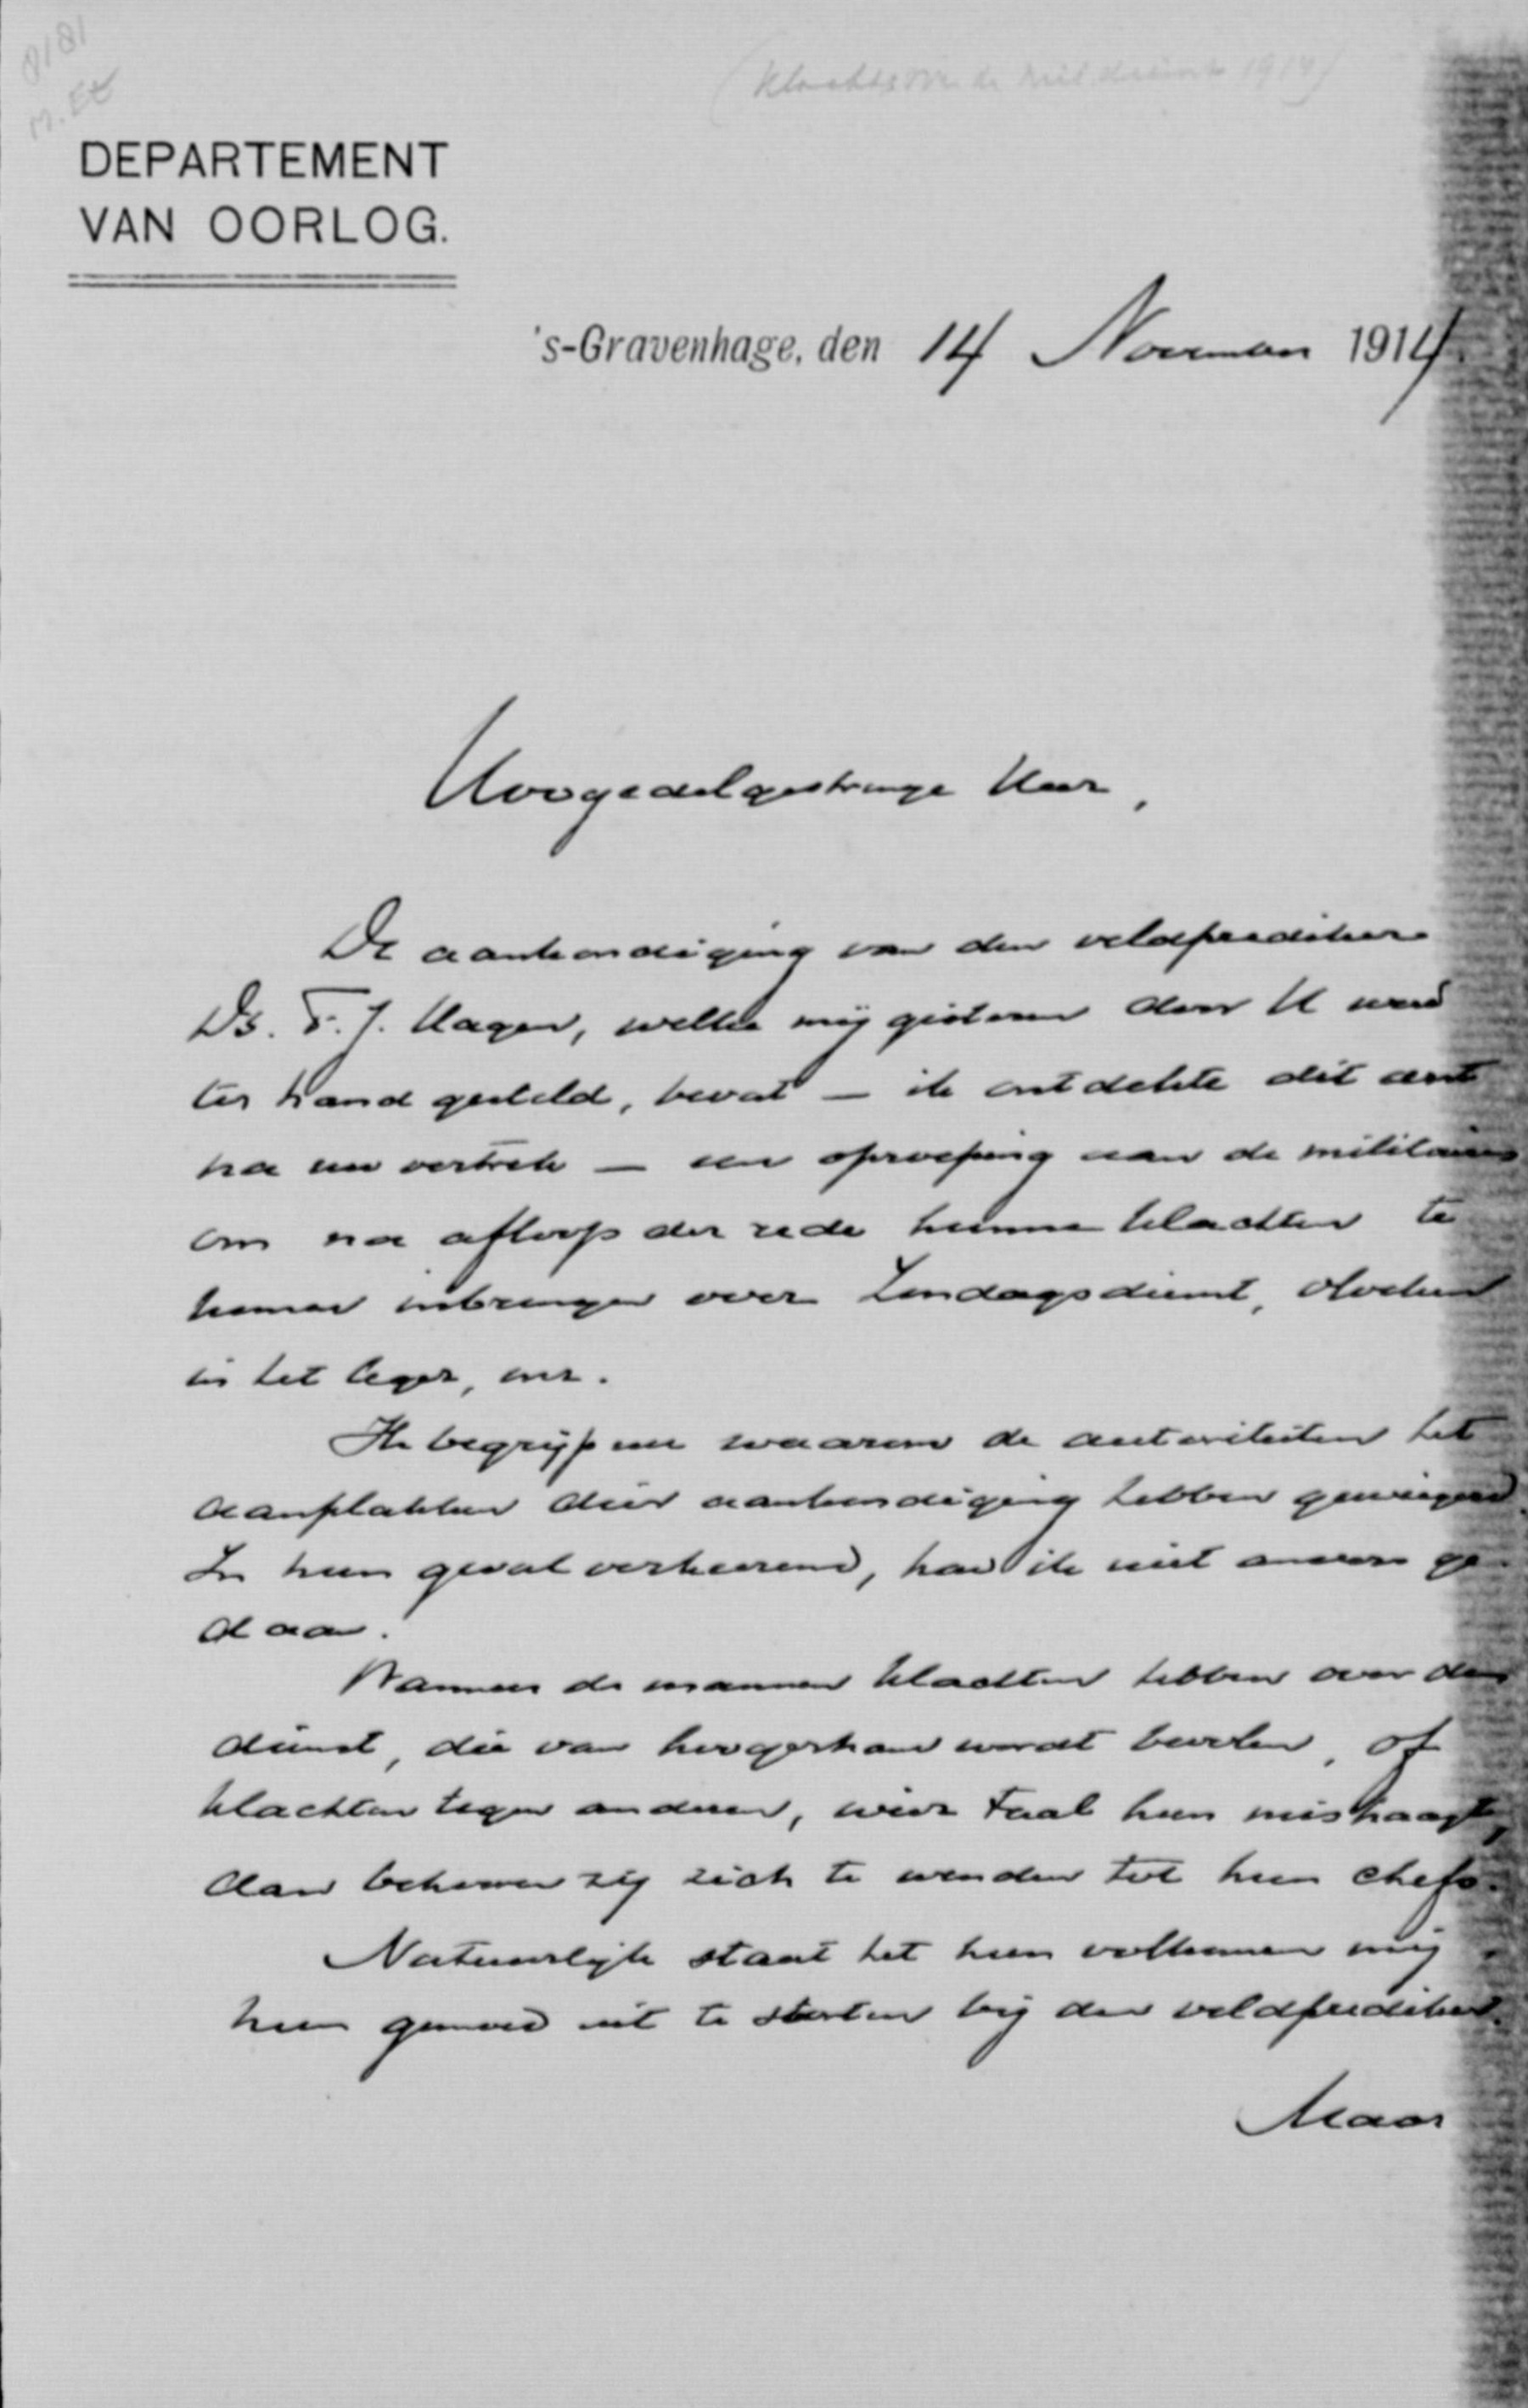 8181
M. Et
(klachten over de mil. dienst 1914)
DEPARTEMENT
VAN OORLOG.
's-Gravenhage, den 14 November 1914.
Hoogedelgestrenge Heer,
De aankondiging van den veldprediker
Ds. F. J. Hagen, welke mij gisteren door U werd
ter hand gesteld, bevat — ik ontdekte dit eerst
na uw vertrek — een oproeping aan de militairen
om na afloop der rede hunne klachten te
komen inbrengen over Zondagsdienst, vloeken
in het leger, enz.
Ik begrijp nu waarom de autoriteiten het
aanplakken dier aankondiging hebben geweigerd.
In hun geval verkeerend, had ik niet anders ge-
daan.
Wanneer de mannen klachten hebben over den
dienst, die van hoogerhand wordt bevolen, of
klachten tegen anderen, wier taal hen mishaagt,
dan behooren zij zich te wenden tot hun chefs.
Natuurlijk staat het hun volkomen vrij
hun gemoed uit te storten bij den veldprediker.
Maar